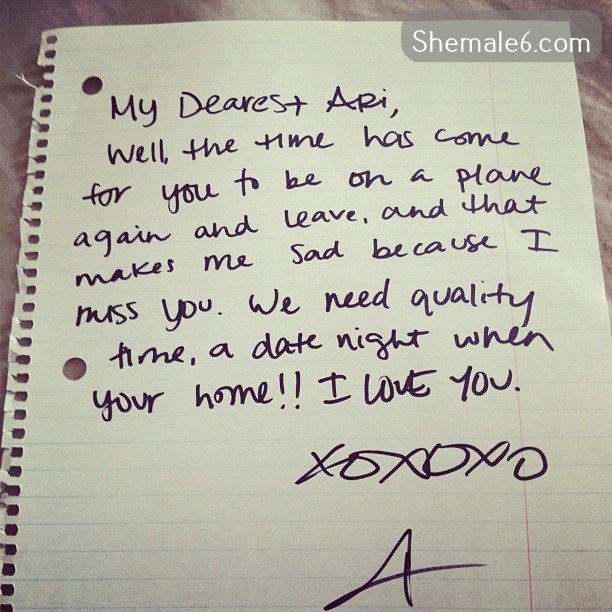 Shemale6.com
My Dearest Ari,
Well, the time has come
for you to be on a plane
again and leave, and that
makes me sad because I
miss you. We need quality
time, a date night when
your home!! I LOVE YOU.
XOXOXO
A